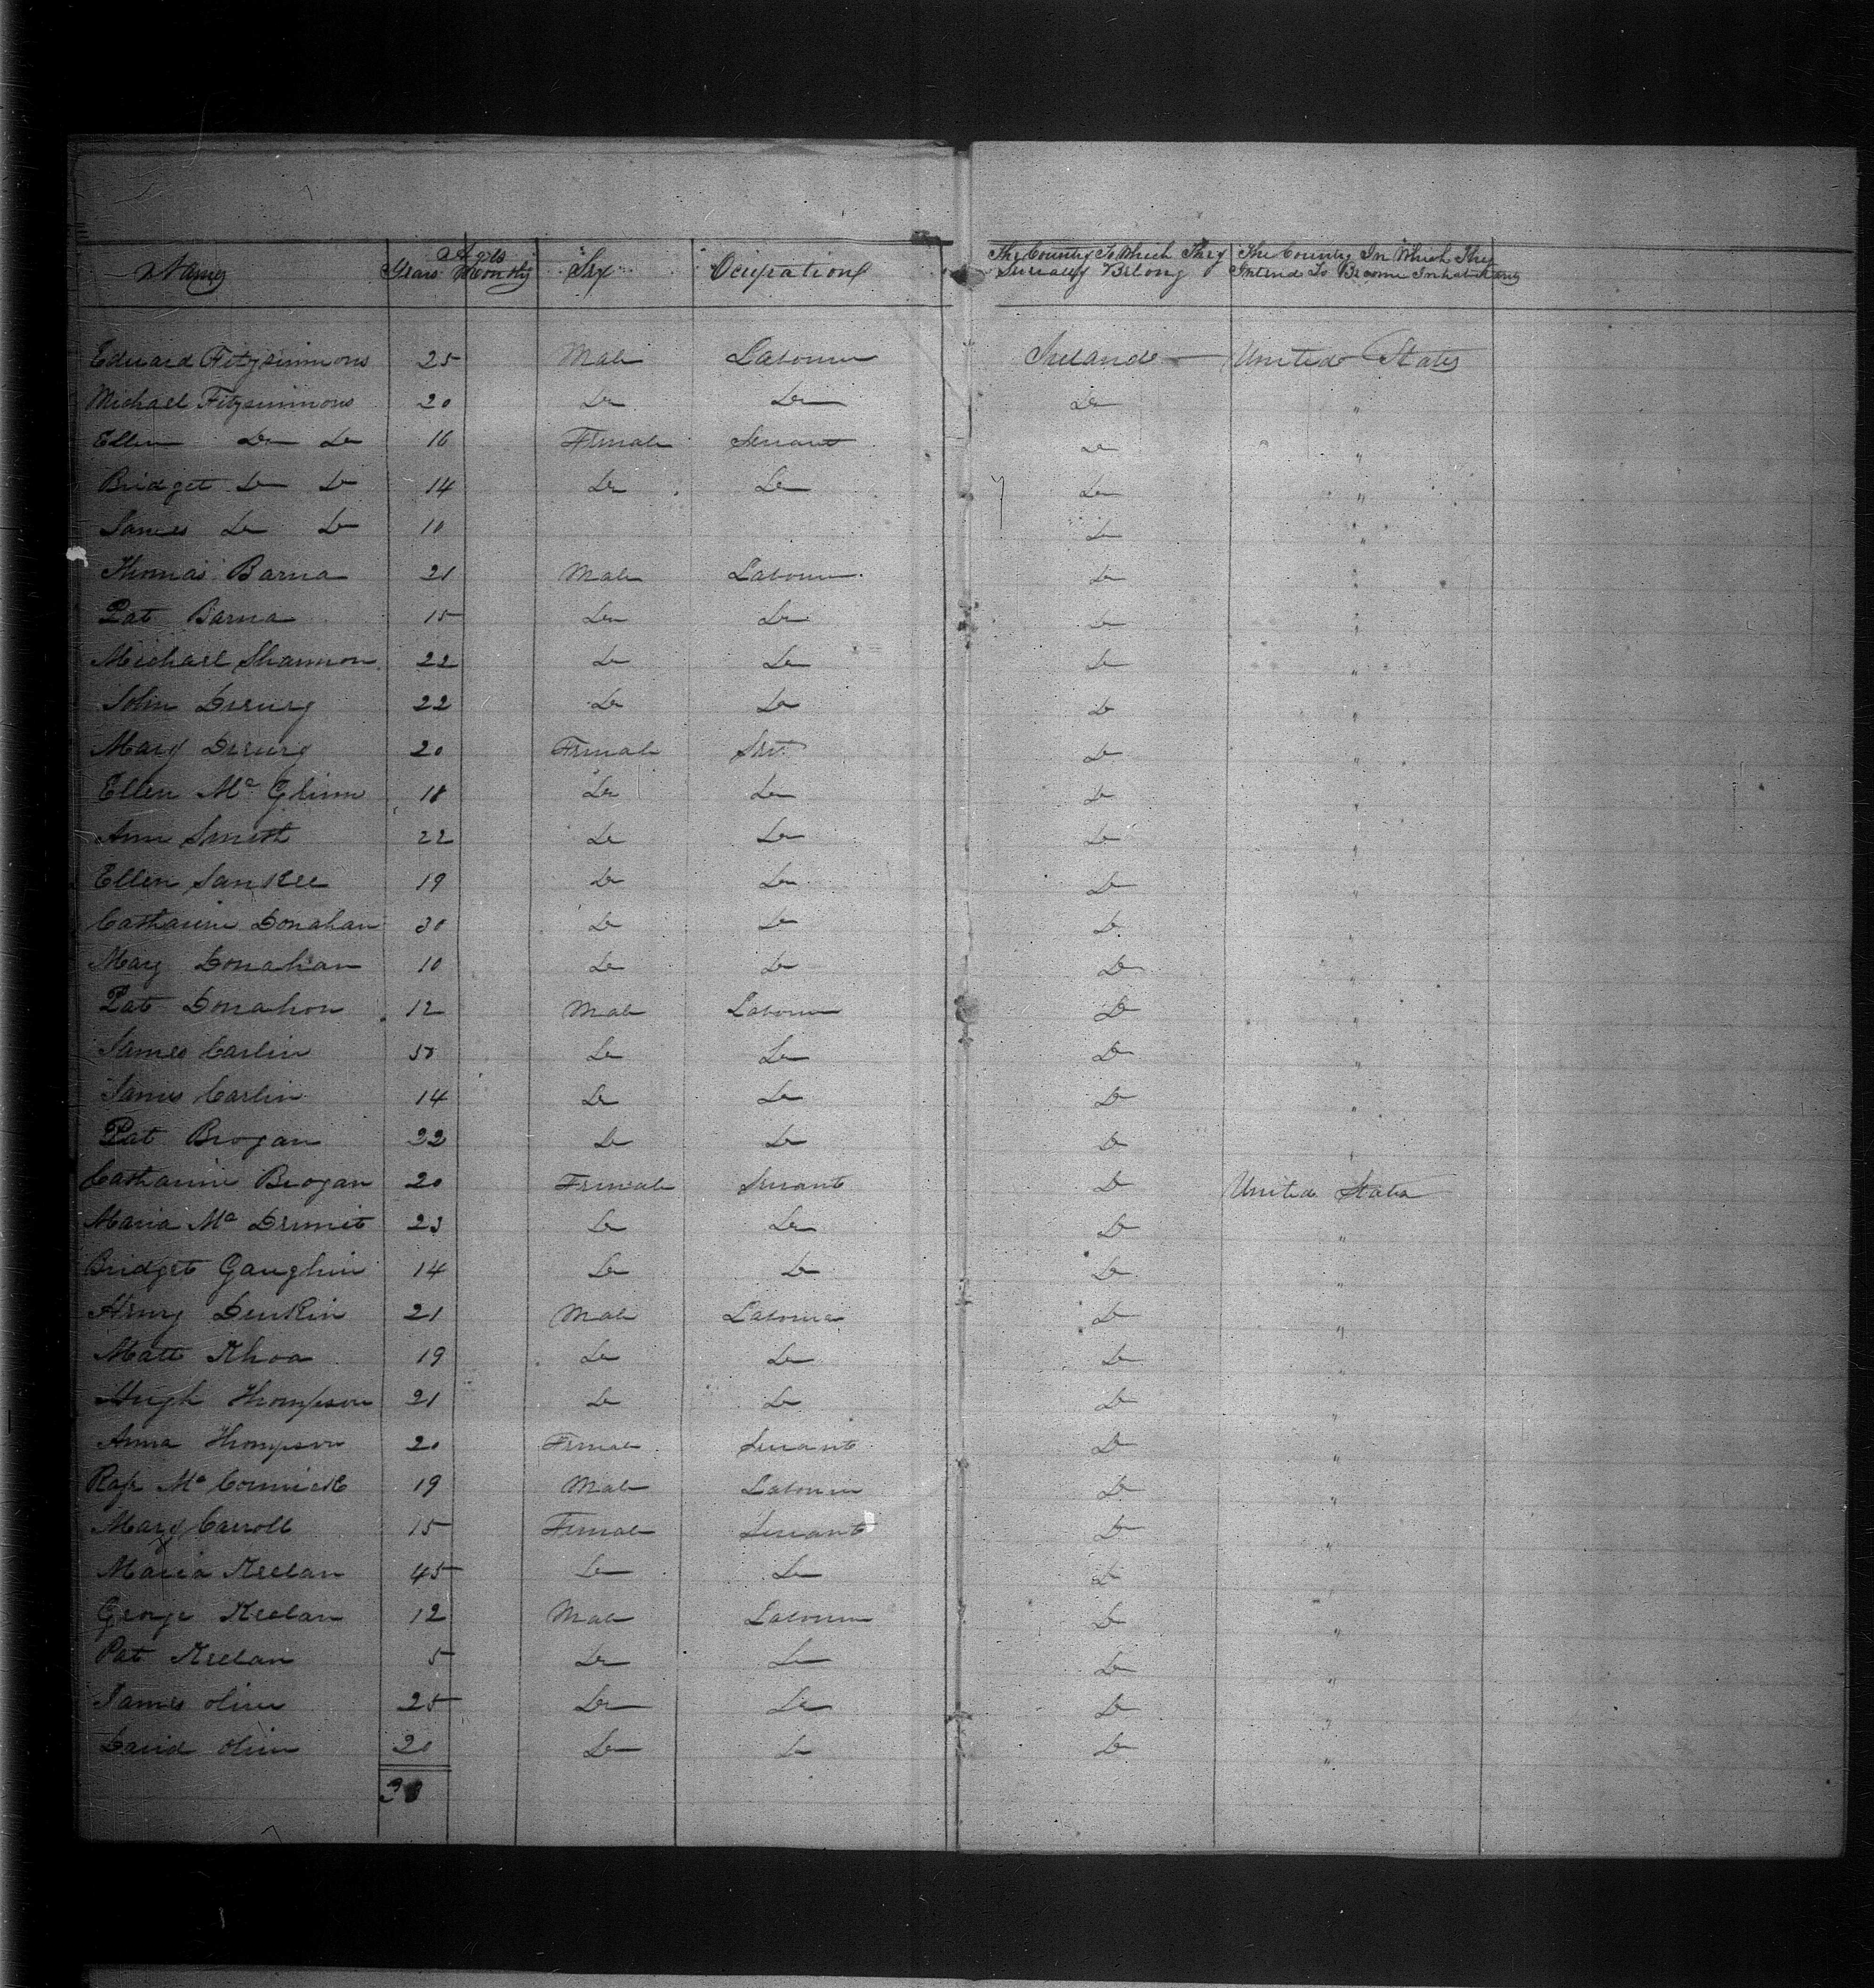 Names Ages Years Months Sex Ocupations The Country To Which They Severally Belong The Country In Which They Intend To Become Inhabitants
Edward Fitzsimmons 25 Male Labourer Ireland United States
Michael Fitzsimmons 20 Do Do Do "
Ellen Do Do 16 Female Servant Do "
Bridget Do Do 14 Do Do Do "
James Do Do 10 Do "
Thomas Barna 21 Male Labourer Do "
Pat Barna 15 Do Do Do "
Michael Shannon 22 Do Do Do "
John Drury 22 Do Do Do "
Mary Drury 20 Female Srvt Do "
Ellen Mc Glinn 18 Do Do Do "
Ann Smith 22 Do Do Do "
Ellen Sankee 19 Do Do Do "
Catharine Donahan 30 Do Do Do "
Mary Donahan 10 Do Do Do "
Pat Donahon 12 Male Labourer Do "
James Carlin 50 Do Do Do "
James Carlin 14 Do Do Do "
Pat Brogan 22 Do Do Do "
Catharine Brogan 20 Female Servant Do United States
Maria Mc Dermit 23 Do Do Do "
Bridget Gaughin 14 Do Do Do "
Henry Denkin 21 Male Labourer Do "
Matt Khoa 19 Do Do Do "
Hugh Thompson 21 Do Do Do "
Anna Thompson 20 Female Servant Do "
Mc Cormick 19 Male Labourer Do "
Mary Carroll 15 Female Servant Do "
Maria Keelan 45 Do Do Do "
George Keelan 12 Male Labourer Do "
Pat Keelan 5 Do Do Do "
James Oliver 25 Do Do Do "
David Oliver 20 Do Do Do "